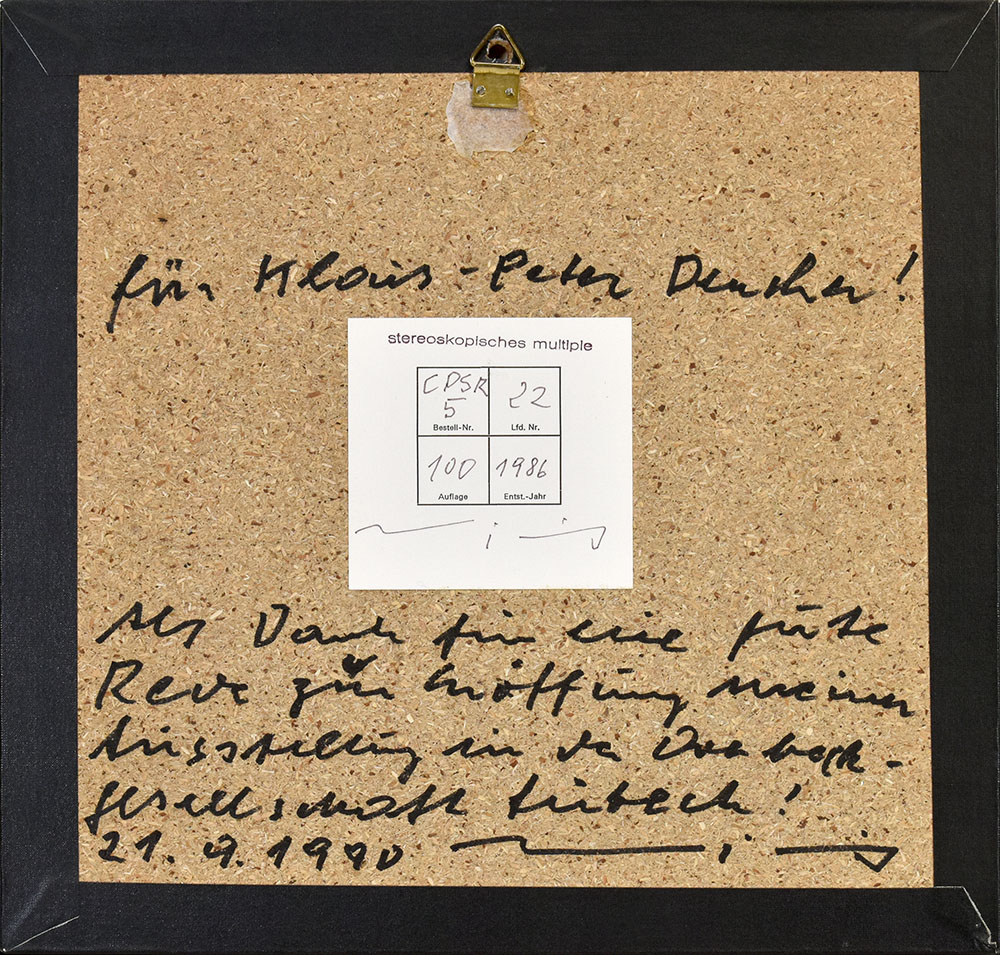 für Klaus-Peter Dencker!
stereoskopisches multiple
CPSR 5
Bestell-Nr.
22
Lfd. Nr.
100
Auflage
1986
Entst.-Jahr
Als Dank für eine gute
Rede zur Eröffnung meiner
Ausstellung in der Overbeck-
gesellschaft Lübeck!
21. 9. 1990